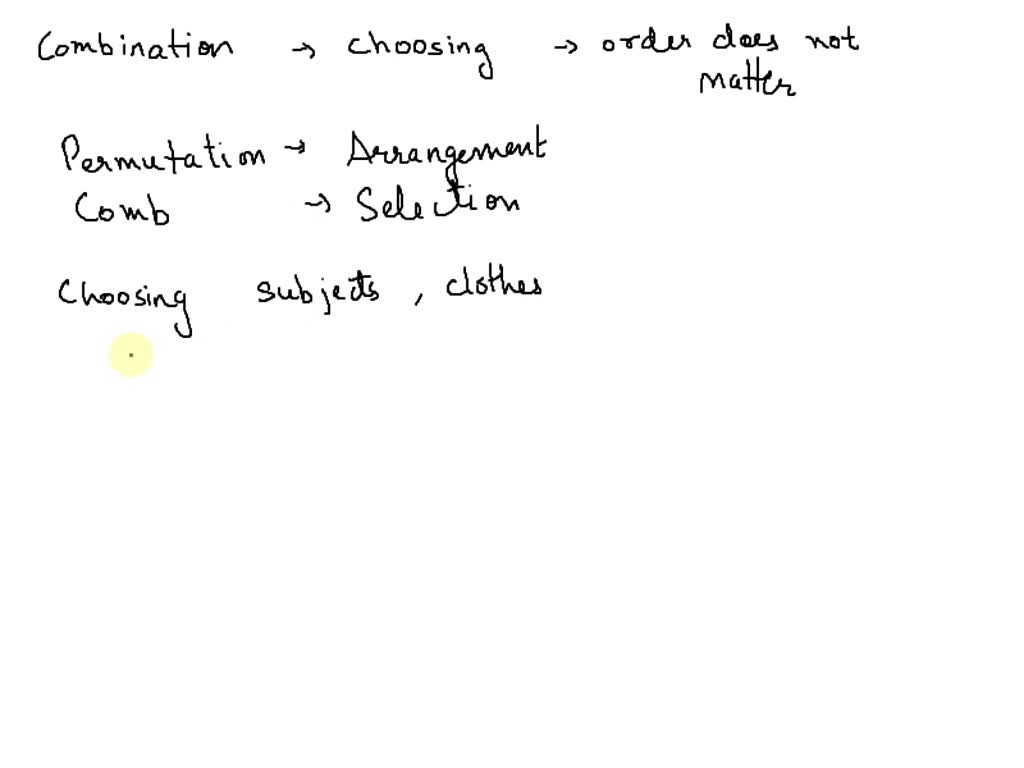 Combination → choosing → order does not
matter
Permutation → Arrangement
Comb → Selection
Choosing subjects , clothes